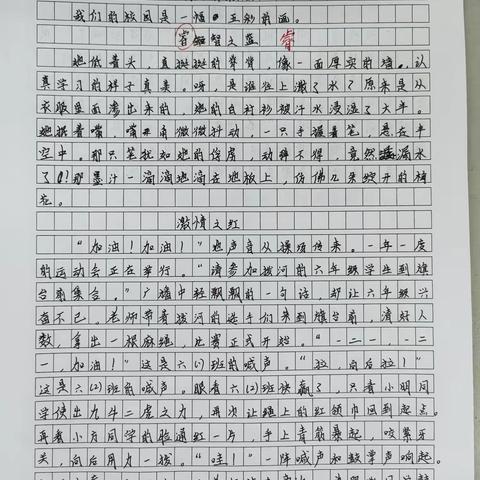 我们的校园是一幅五彩的画。
睿智之蓝 睿
她低着头，直挺挺的脊背，像一面厚实的墙，认
真学习的样子真美。呀，是谁往上激了水？原来是从
衣服里面渗出来的，她的白衬衫被汗水浸湿了大半。
她抿着嘴，嘴角微微抖动，一只手握着笔，悬在半
空中。那只笔犹如她的侍虏，动弹不得，竟然漏水
了！那墨汁一滴滴地滴在地板上，仿佛几朵绽开的梅
花。
激情之红
“加油！加油！”她声音从操场传来。一年一度
的运动会正在举行。“请参加拔河的六年级学生到旗
台前集合。”广播中轻飘飘的一句话，却让六年级兴
奋不已。老师带着拔河的选手们来到旗台前，清好人
数，拿出一根麻绳，比赛正式开始。“一二一，一二
一，加油！”这是六(1)班的喊声。“拉，向后拉！”
这是六(2)班的喊声。眼看六(2)班快赢了，只看小明同
学使出九牛二虎之力，再次让绳上的红领巾回到起点。
再看小方同学的脸通红一片，手上青筋暴起，咬紧牙
关，向后用力一拔。“哇！”一阵喊声和鼓掌声响起。